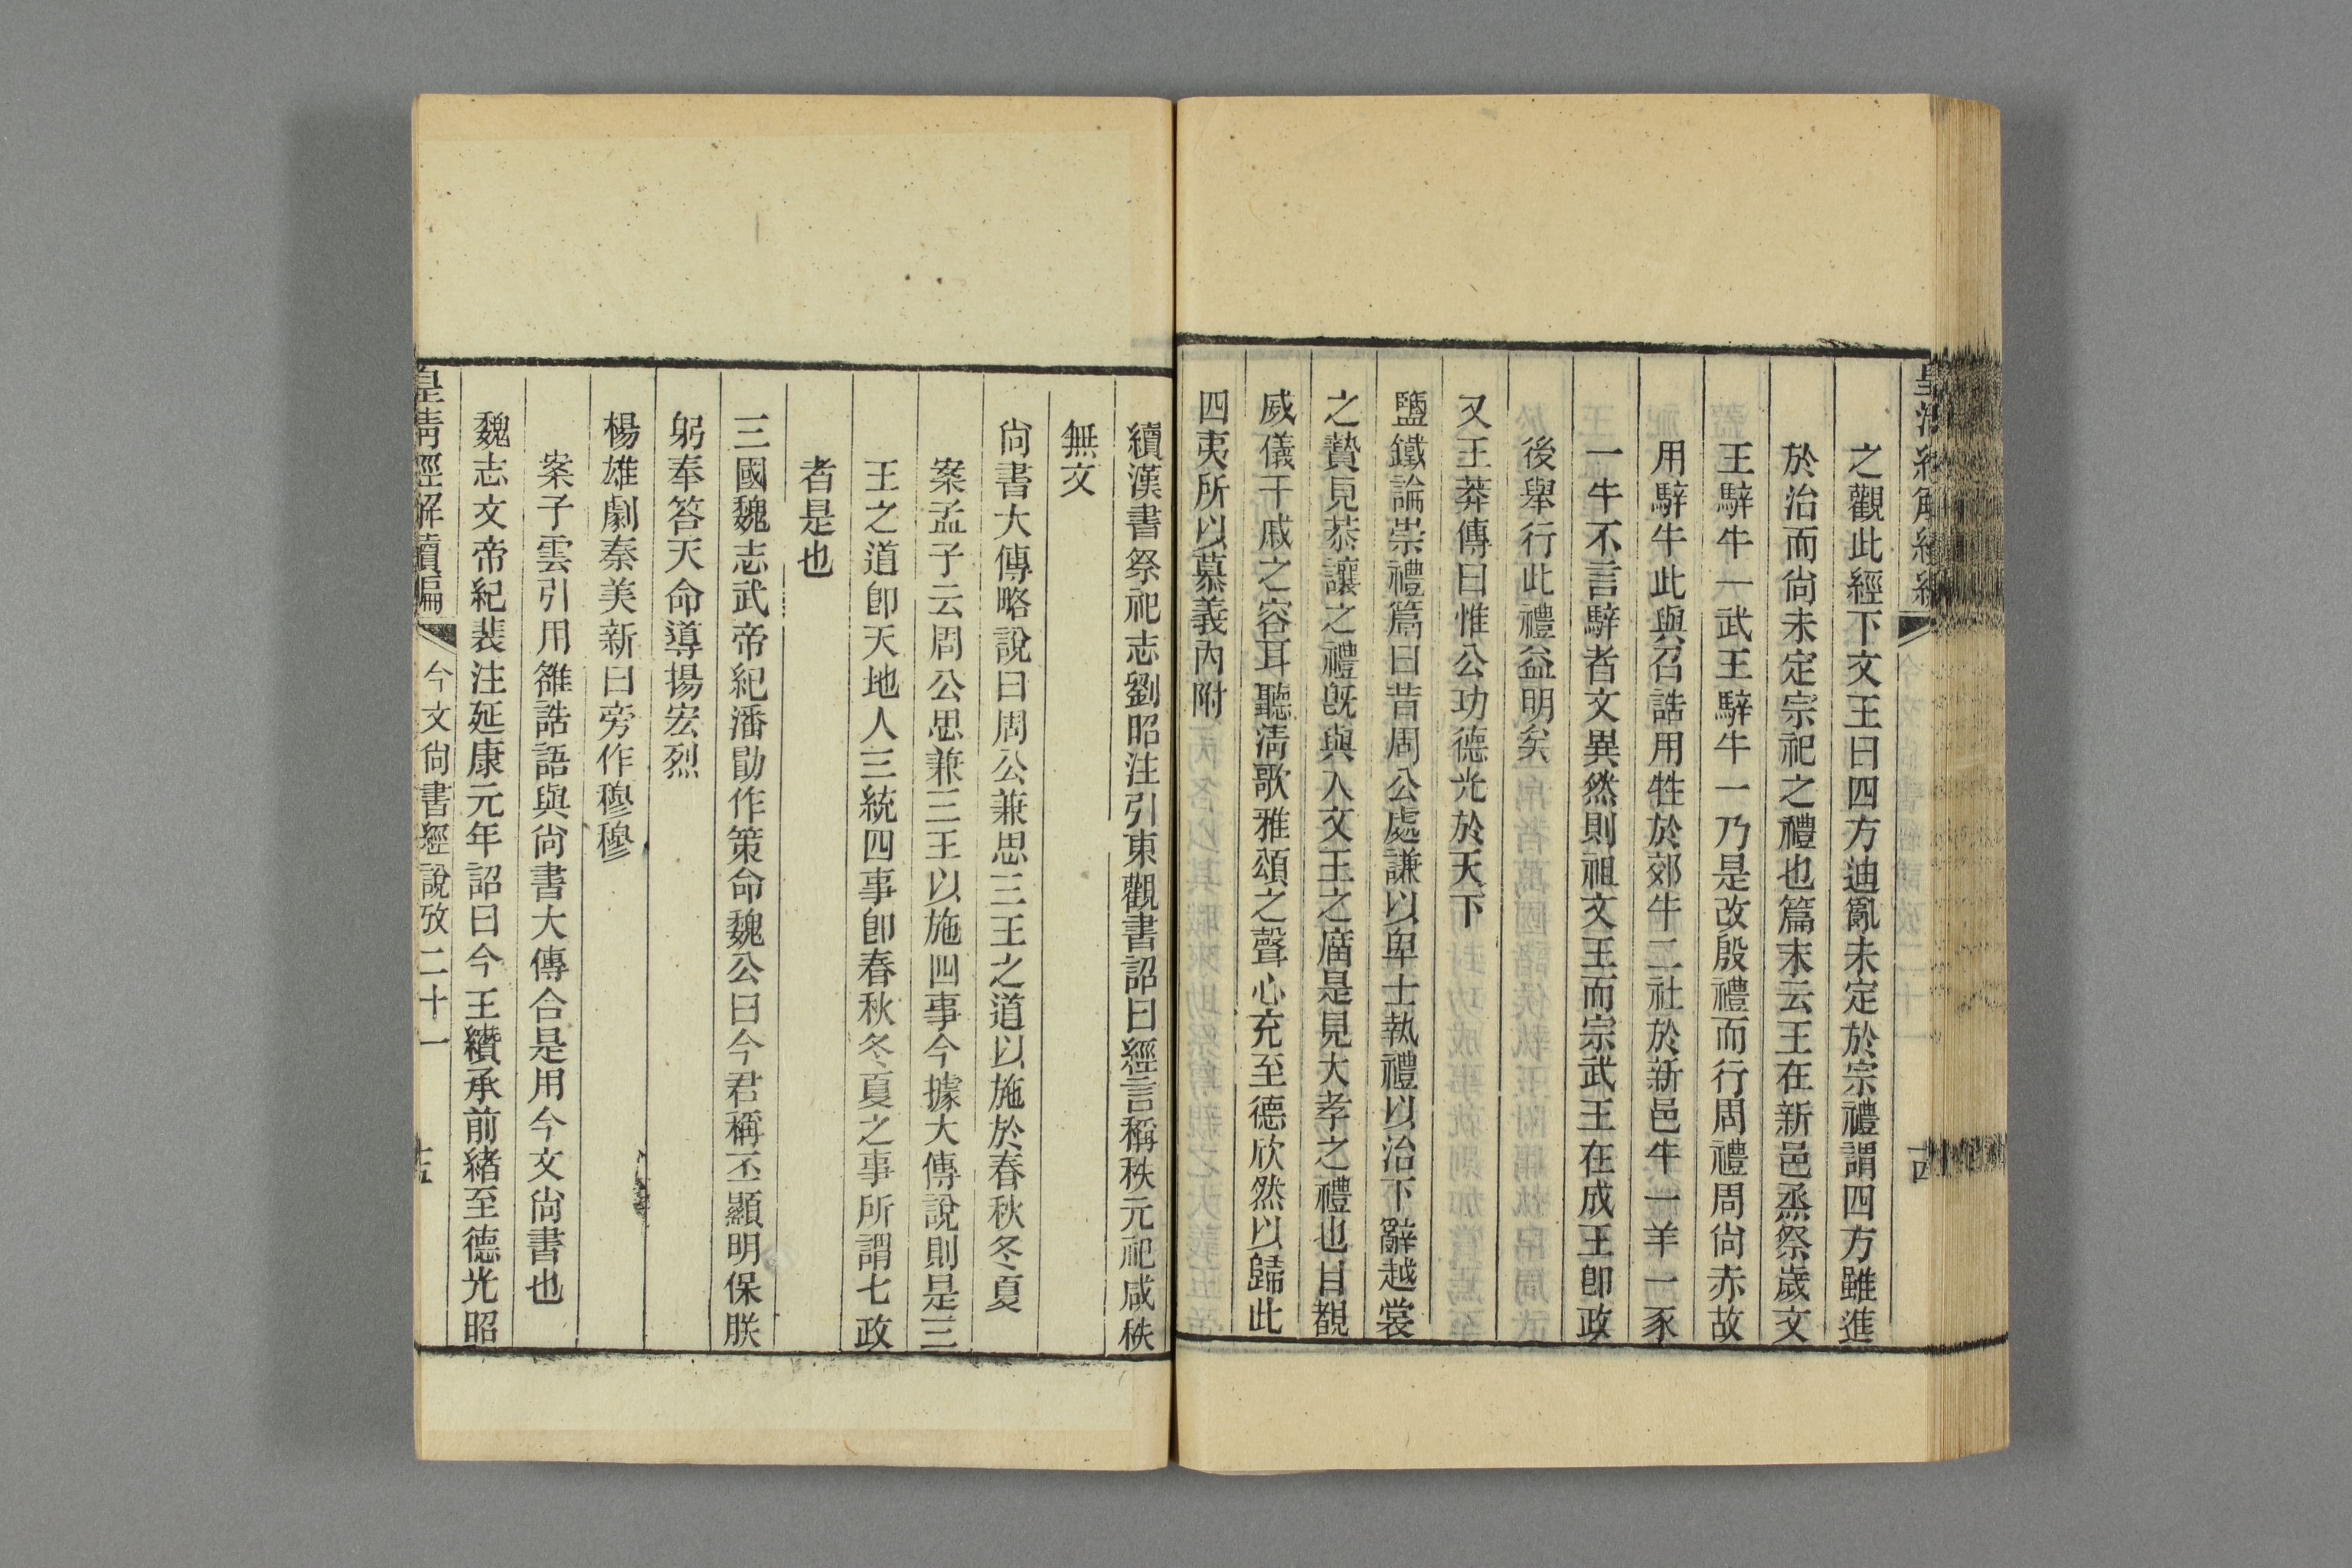 之觀此經下文王曰四方迪亂未定於宗禮謂四方雖進
於治而尚未定宗祀之禮也篇末云王在新邑烝祭歲文
王騂牛一武王騂牛一乃是改殷禮而行周禮周尚赤故
用騂牛此與召誥用牲於郊牛二社於新邑牛一羊一豕
一牛不言騂者文異然則祖文王而宗武王在成王卽政
後舉行此禮益明矣
又王莽傳曰惟公功德光於天下
鹽鐵論崇禮篇曰昔周公處謙以卑士執禮以治下辭越裳
之贄見恭讓之禮旣與入文王之廟是見大孝之禮也目覩
威儀干戚之容耳聽淸歌雅頌之聲心充至德欣然以歸此
四夷所以慕義內附
續漢書祭祀志劉昭注引東觀書詔曰經言稱秩元祀咸秩
無文
尙書大傳略說曰周公兼思三王之道以施於春秋冬夏
案孟子云周公思兼三王以施四事今據大傳說則是三
王之道卽天地人三統四事卽春秋冬夏之事所謂七政
者是也
三國魏志武帝紀潘勖作策命魏公曰今君稱丕顯明保朕
躬奉答天命導揚宏烈
楊雄劇秦美新曰旁作穆穆
案子雲引用雒誥語與尙書大傳合是用今文尙書也
魏志文帝紀裴注延康元年詔曰今王纘承前緒至德光昭
皇淸經解續編 今文尙書經說攷二十一 十五